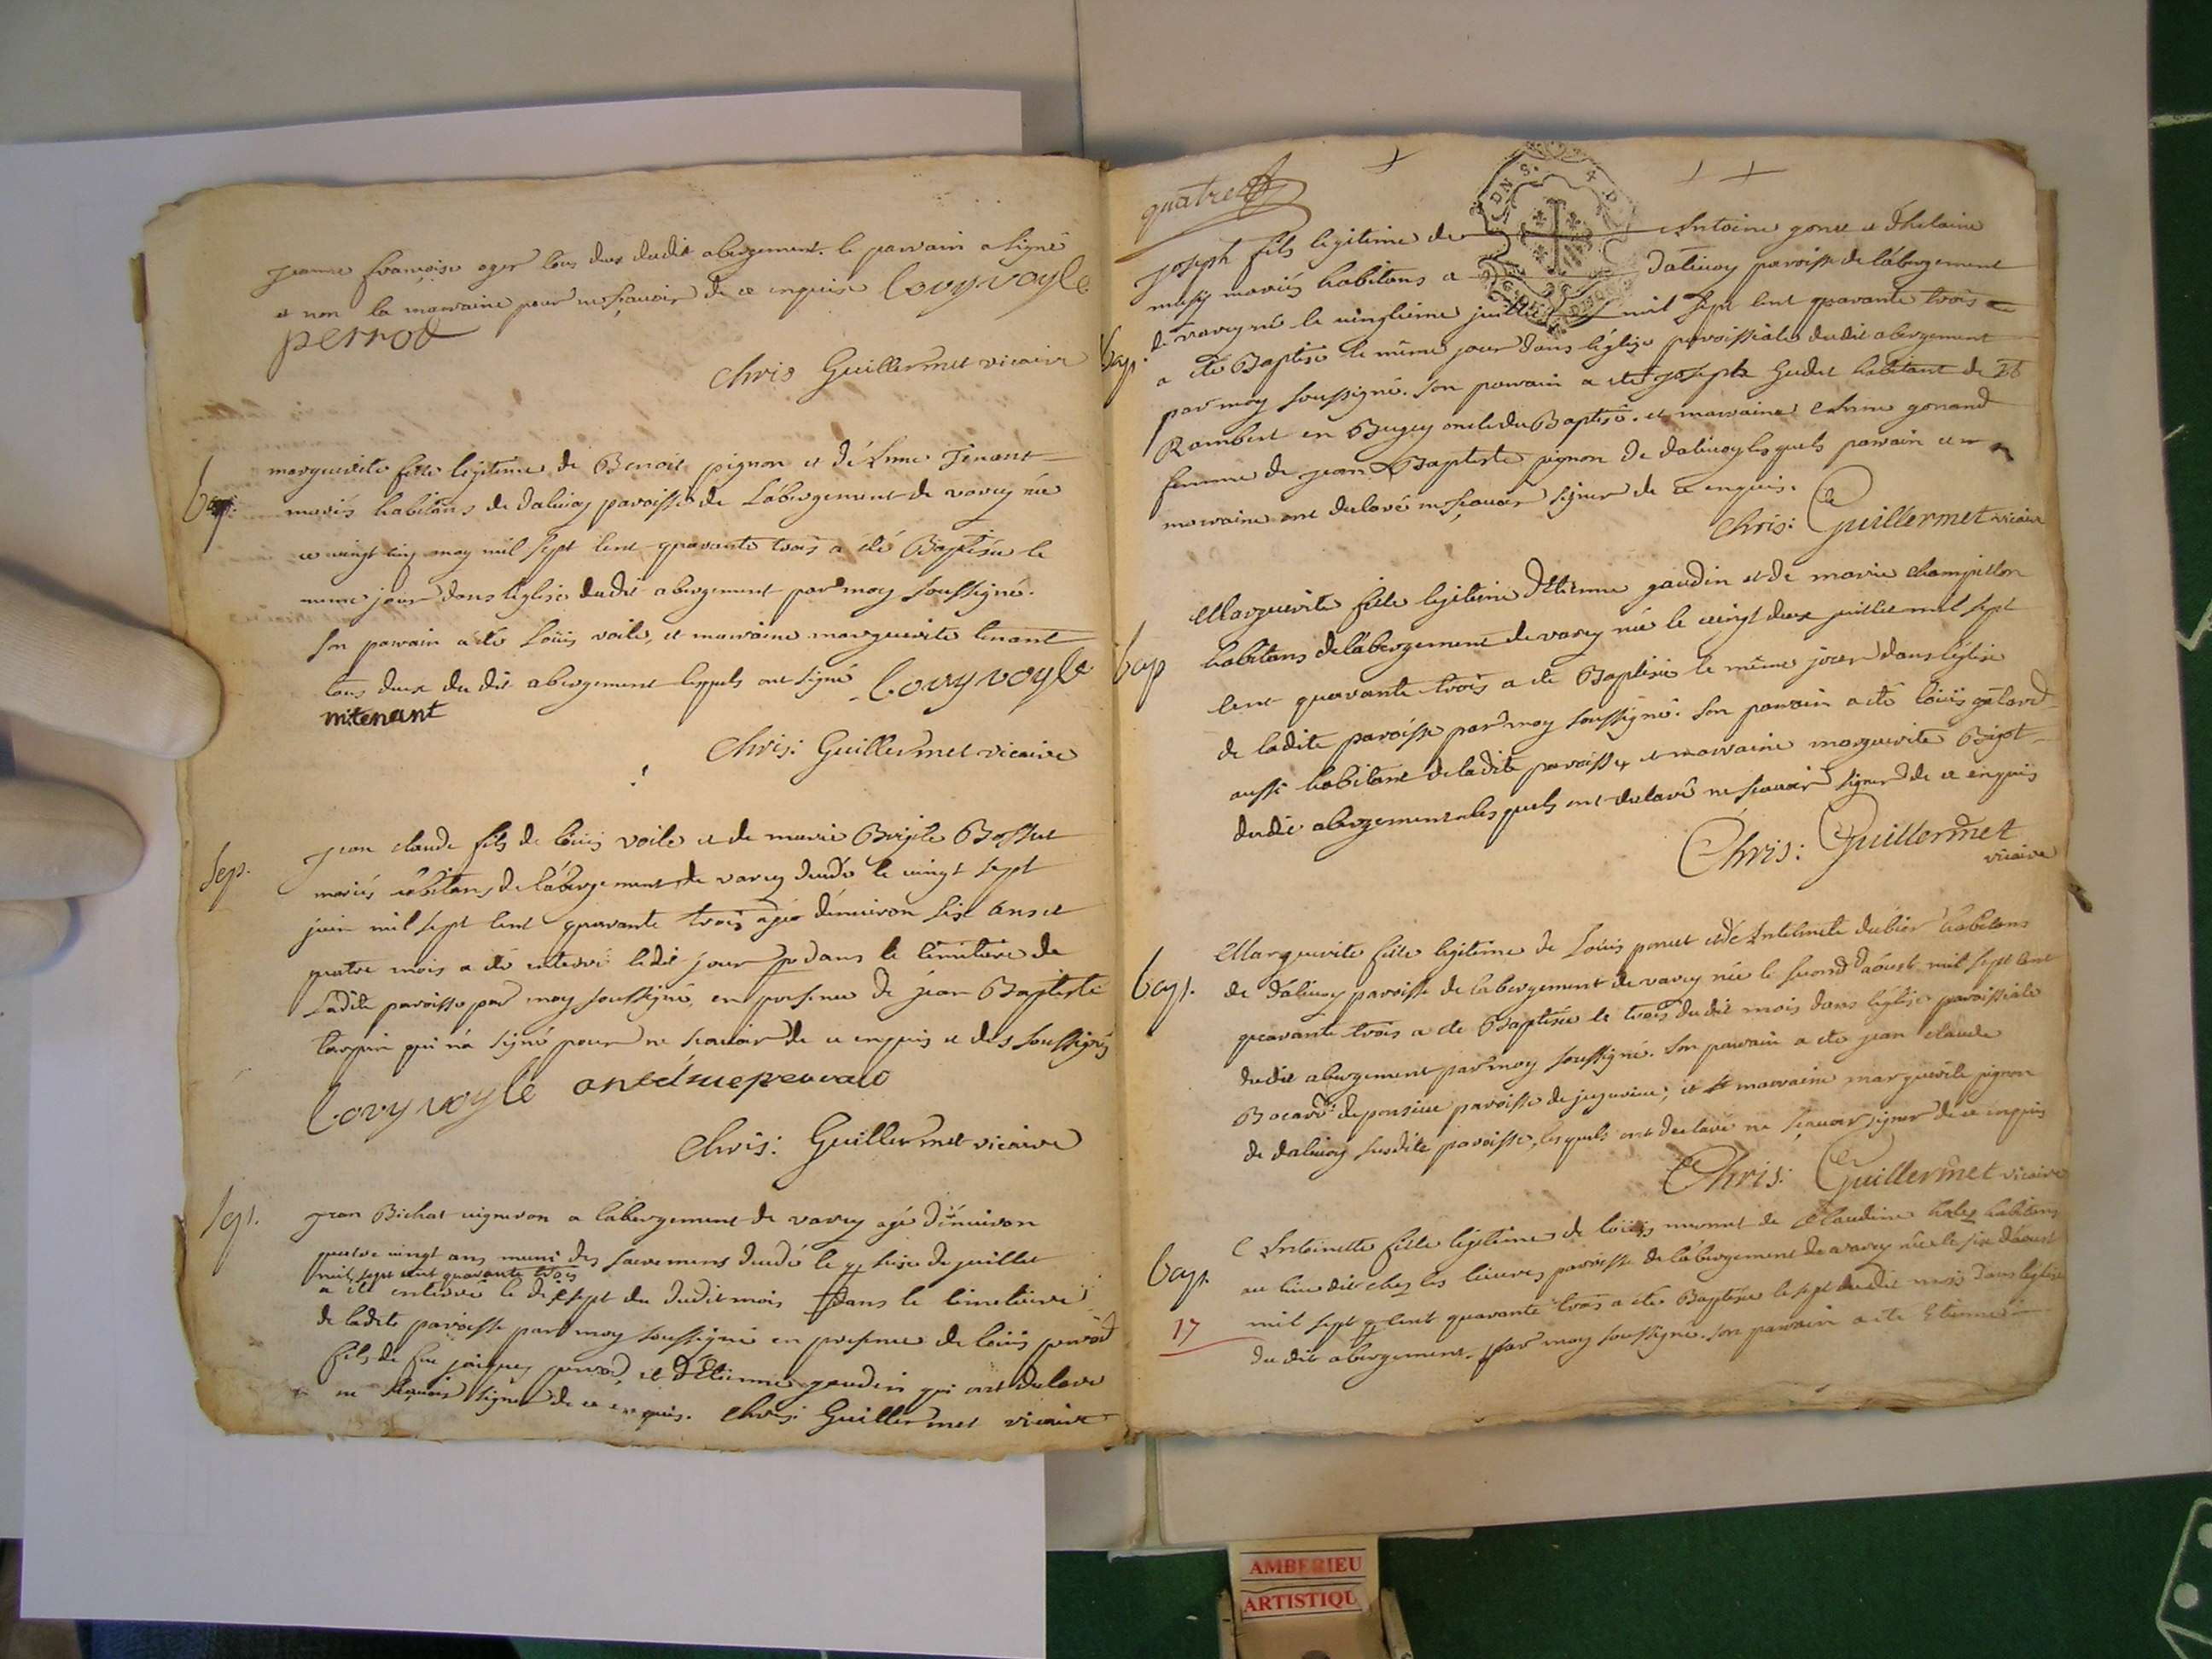 Jeanne françoise oger tous deux dudit abergement. le parrain a signé
et non la marraine pour ne sçavoir de ce enquise Louy voyle
perrod
Chris Guillermet vicaire
bap.
marguerite fille légitime de Benoit pignon et d'Anne Tenant
mariés habitans de dalivoy paroisse de Labergement de varey née
le vingt cinq may mil sept cent quarante trois a été Baptisée le
meme jour dans léglise dudit abergement par moy soussigné.
Son parrain a été Loüis voile, et marraine marguerite tenant
tous deux du dit abergement lesquels ont signé Louy voyle
m:tenant
Chris: Guillermet vicaire
Sep.
Jean claude fils de loüis voile et de marie Brigite Bossut
mariés abitans de labergement de varey décédé le vingt sept
juin mil sept cent quarante trois agé d'environ six ans et
quatre mois a été enterré ledit jour dans le cimetiere de
Ladite paroisse par moy soussigné en presence de jean Baptiste
qui n'a signé pour ne scavoir de ce enquis et des soussignés
Louy voyle
Chris: Guillermet vicaire
Sep.
Jean Bichat vigneron a labergement de varey agé d'environ
quatre vingt ans muni des sacremens décédé le seize de juillet
mil sept cent quarante trois
a été enterré le dixsept du dudit mois dans le cimetiere
de ladite paroisse par moy soussigné en presence de loüis perrod
fils de feu jacques perrod, et d'Etienne gaudin qui ont declaré
ne sçavoir signer de ce enquis. Chris: Guillermet vicaire
quatre
Joseph fils legitime de Antoine gonet et d'helaine
mariés habitans a Dalivoy paroisse de labergement
de varey né le vingtieme juillet mil sept cent quarante trois
bap.
a été Baptisé le même jour dans léglise paroissiale dudit abergement
par moy soussigné. Son parrain a été joseph Gudet habitant de St
Rambert en Bugey oncle du Baptisé. et marraine Anne gonand
femme de jean Baptiste pignon de dalivoy lesquels parrain et
marraine ont declaré ne sçavoir signer de ce enquis.
Chris: Guillermet vicaire
Marguerite fille legitime d'Etienne gaudin et de marie champillon
bap
habitans de labergement de varey née le vingt deux juillet mil sept
cent quarante trois a été Baptisée le même jour dans léglise
de ladite paroisse par moy soussigné. Son parrain a été loüis galard
aussi habitant de ladite paroisse, et marraine marguerite Bigot
dudit abergement lesquels ont declaré ne scavoir signer de ce enquis
Chris: Guillermet
vicaire
Marguerite fille legitime de Loüis poncet et d'Antelmete dubier habitans
bapt.
de dalivoy paroisse de labergement de varey née le second d'aoust mil sept cent
quarante trois a été Baptisée le trois du dit mois dans léglise paroissiale
dudit abergement par moy soussigné. Son parrain a été jean claude
Bocard de ponsieu paroisse de jujurieu; et marraine marguerite pignon
de dalivoy susdite paroisse, lesquels ont declaré ne sçavoir signer de ce enquis
Chris: Guillermet vicaire
Antoinette fille legitime de loüis et de Claudine habitans
Bapt.
au lieu dit chez les lieures paroisse de labergement de varey née le six d'aoust
17
mil sept cent quarante trois a été Baptisée le sept du dit mois dans léglise
du dit abergement. par moy soussigné. Son parrain a été Etienne
AMBERIEU
ARTISTIQU